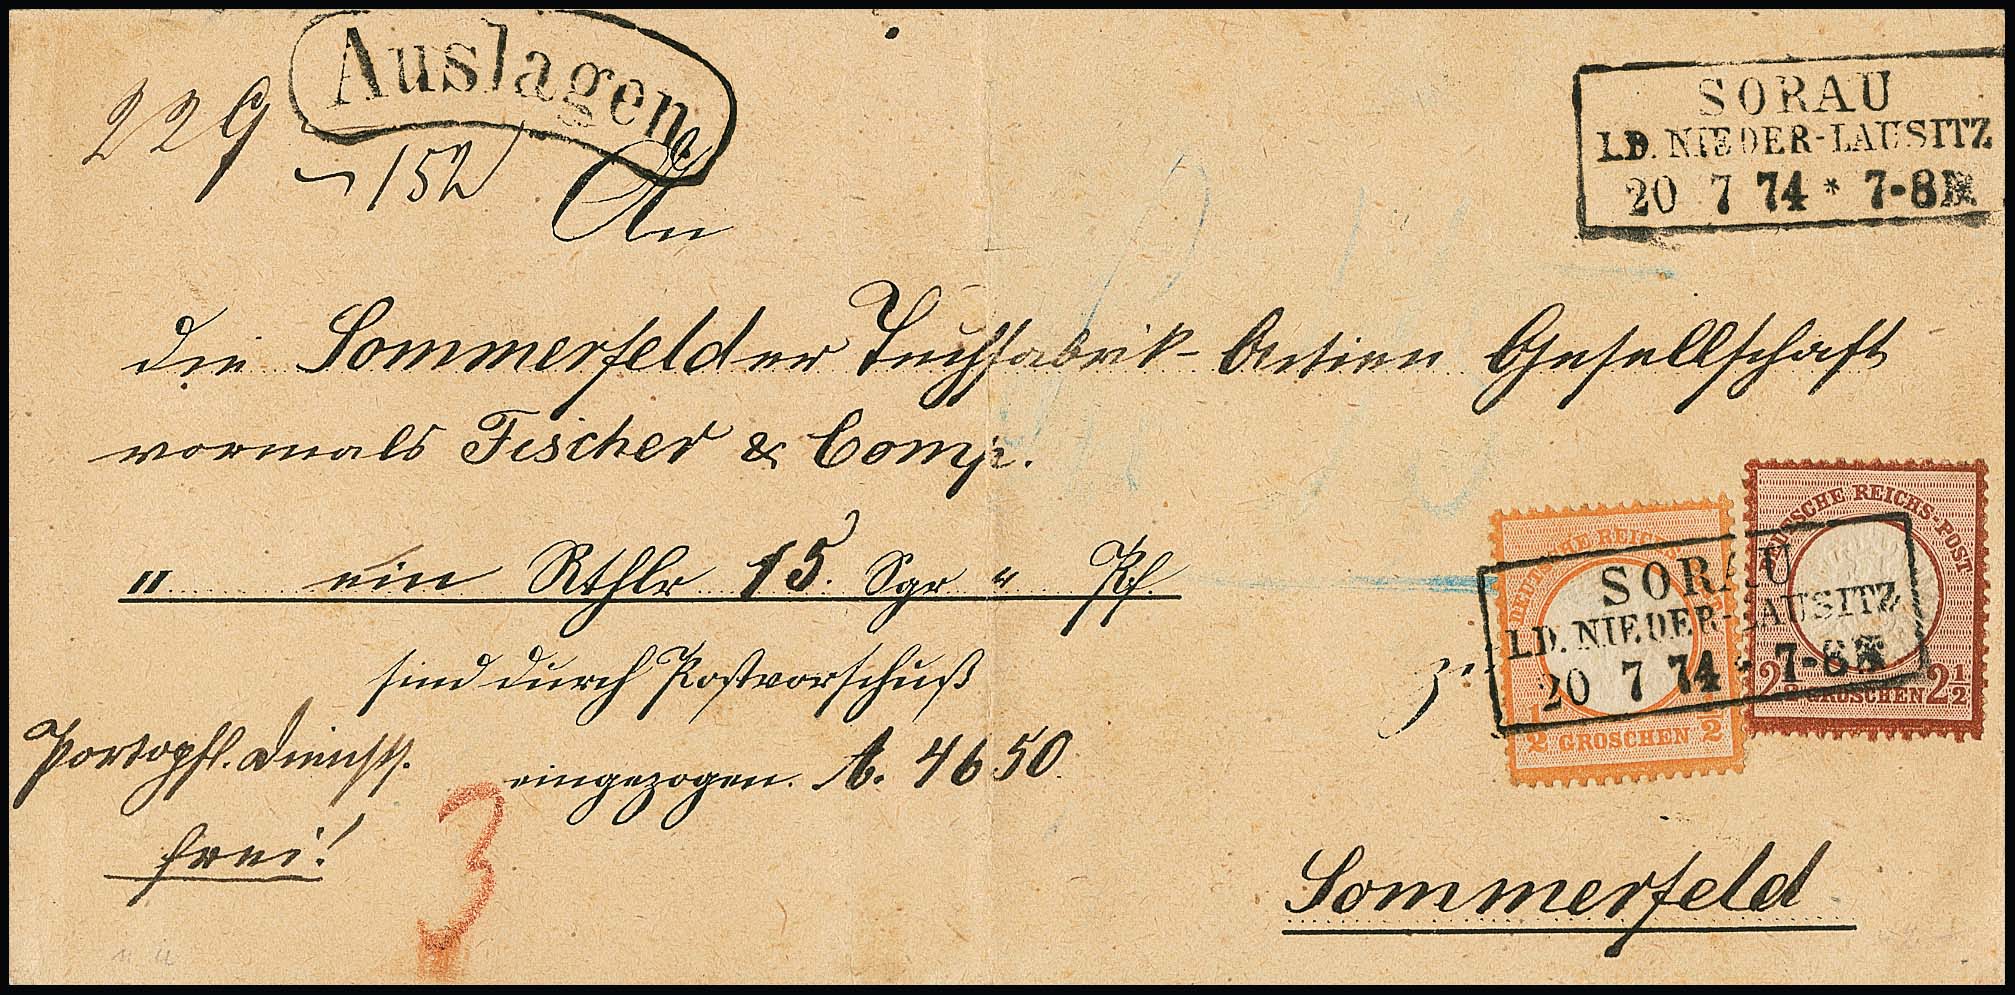 Auslagen.
229
152
SORAU
I.D. NIEDER-LAUSITZ
20 7 74 * 7-8N.
An
die Sommerfelder Tuchfabrik-Actien Gesellschaft
vormals Fischer & Comp.
" ein Rthlr 15. Sgr " Pf.
sind durch Postvorschuß
eingezogen. A. 4650.
Portopfl. Diensts.
frei!
3
zu
DEUTSCHE REICHS-POST
½ GROSCHEN ½
DEUTSCHE REICHS-POST
2½ GROSCHEN 2½
SORAU
I.D. NIEDER-LAUSITZ
20 7 74 * 7-8N
Sommerfeld